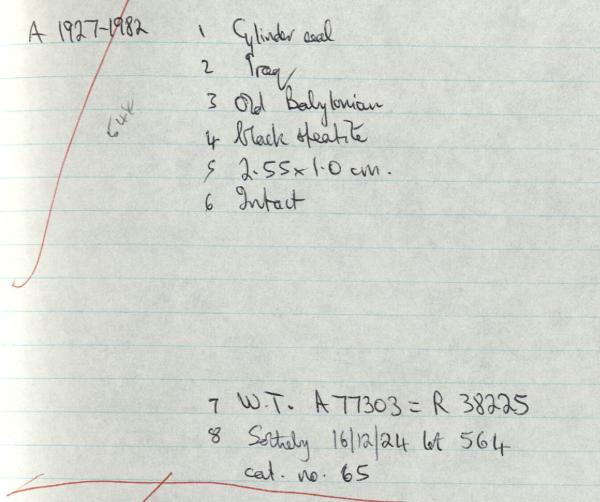 A 1927-1982 1 Cylinder seal
2 Iraq
3 Old Babylonian
64k
4 black steatite
5 2.55 x 1.0 cm.
6 Intact
7 W.T. A 77303 = R 38225
8 Sotheby 16/12/24 lot 564
cat. no. 65